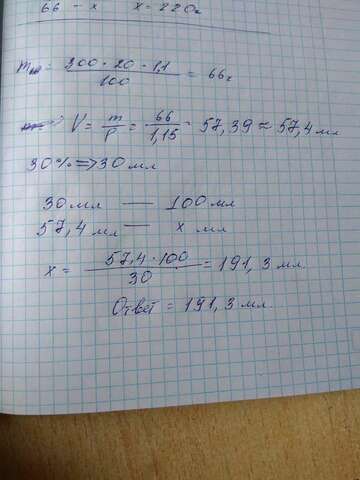 66 - x x = 220г
= 300 · 20 · 1,1 / 100 = 66г
V = m/ρ = 66/1,15 = 57,39 ≈ 57,4 мл
30% => 30 мл
30 мл — 100 мл
57,4 мл — x мл
x = 57,4 · 100 / 30 = 191,3 мл.
Ответ = 191,3 мл.